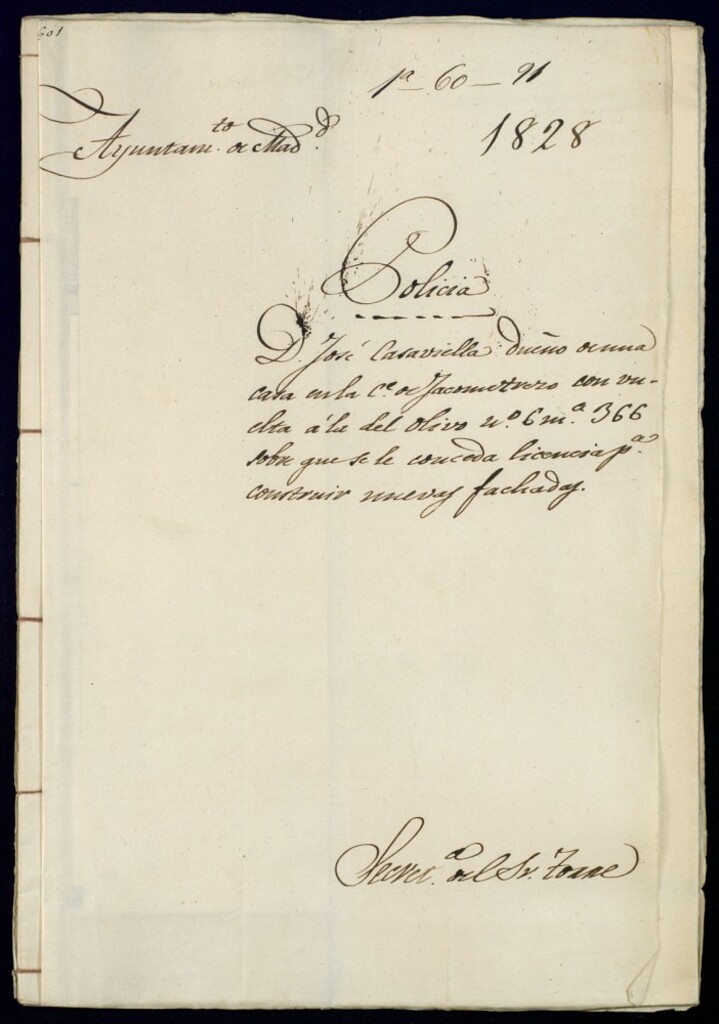 1ª 60 - 91
Ayuntam.to de Mad.d
1828
Policia
D. José Casaviella dueño de una
casa en la C.e de Jacometrezo con vu-
elta á la del Olivo nº 6 m.ª 366
sobre que se le conceda licencia p.ª
construir nuevas fachadas.
Secret.ª del Sr. Torre